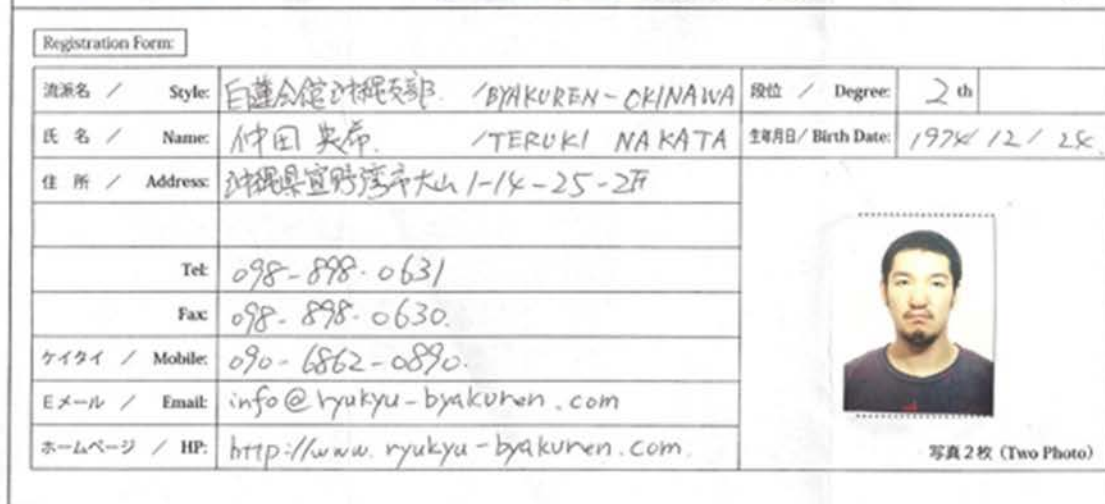 Registration Form:
流派名 / Style: 白蓮会館沖縄支部 /BYAKUREN-OKINAWA 段位 / Degree: 2 th
氏 名 / Name: 仲田 /TERUKI NAKATA 生年月日/ Birth Date: 1974/12/24.
住 所 / Address: 沖縄県宜野湾市大山1-14-25-2F
Tel: 098-898-0631
Fax: 098-898-0630.
ケイタイ / Mobile: 090-6862-0890.
Eメール / Email: info@ryukyu-byakuren.com
ホームページ / HP: http://www.ryukyu-byakuren.com.
写真2枚 (Two Photo)